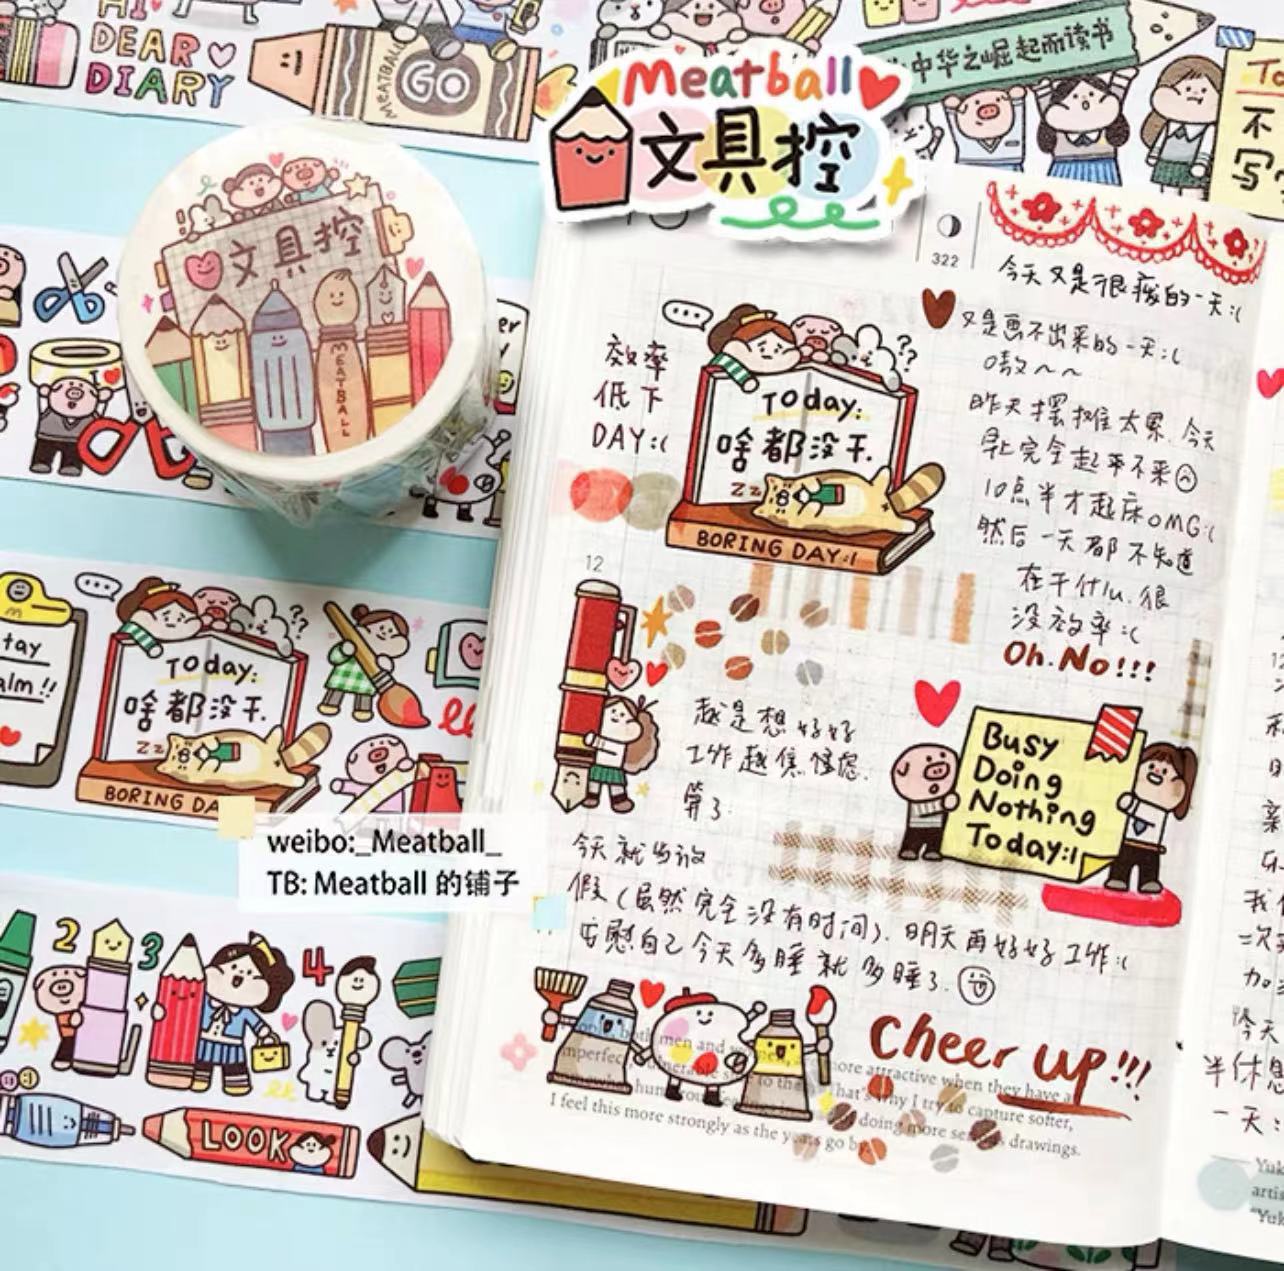 HI
DEAR
DIARY
MEATBALL
GO
中华之崛起而读书
To
不
写
Meatball
文具控
文具控
MEATBALL
322
今天又是很疲的一天:(
又是画不出来的一天:(
嗷~~
昨天摆摊太累,今天
早上完全起不来
10点半才起床OMG:(
然后一天都不知道
在干什么.很
没效率:(
Oh.No!!!
效率
低下
DAY:(
Today:
啥都没干.
zz
BORING DAY:(
12
越是想好好
工作越焦
算了.
tay
alm!!
Today:
啥都没干.
zz
BORING DA
Busy
Doing
Nothing
Today:(
weibo:_Meatball_
TB: Meatball 的铺子
今天就当放
假(虽然完全没有时间).明天再好好工作:(
安慰自己今天多睡就多睡了.
Cheer up!!!
both men and
more attractive when they have a
That's why I try to capture softer,
I feel this more strongly as the years go by
doing more
drawings.
2
3
4
LOOK
12
我
二次
加
今天
半休息
一天:
Yuk
artis
"Yuk